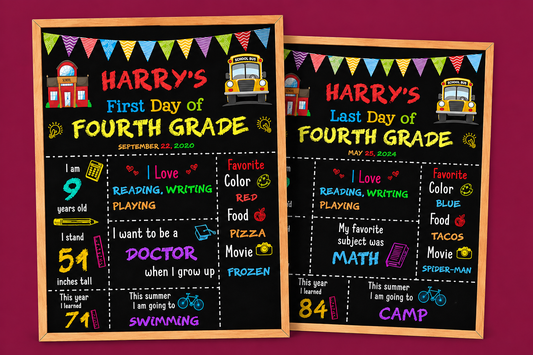 SCHOOL BUS
HARRY'S
First Day of
FOURTH GRADE
SEPTEMBER 22, 2020
I am
9
years old
I stand
51
inches tall
This year
I learned
71
I Love
READING, WRITING
PLAYING
I want to be a
DOCTOR
when I grow up
This summer
I am going to
SWIMMING
Favorite
Color
RED
Food
PIZZA
Movie
FROZEN
SCHOOL BUS
HARRY'S
Last Day of
FOURTH GRADE
MAY 25, 2024
I Love
READING, WRITING
PLAYING
My favorite
subject was
MATH
This year
I learned
84
This summer
I am going to
CAMP
Favorite
Color
BLUE
Food
TACOS
Movie
SPIDER-MAN